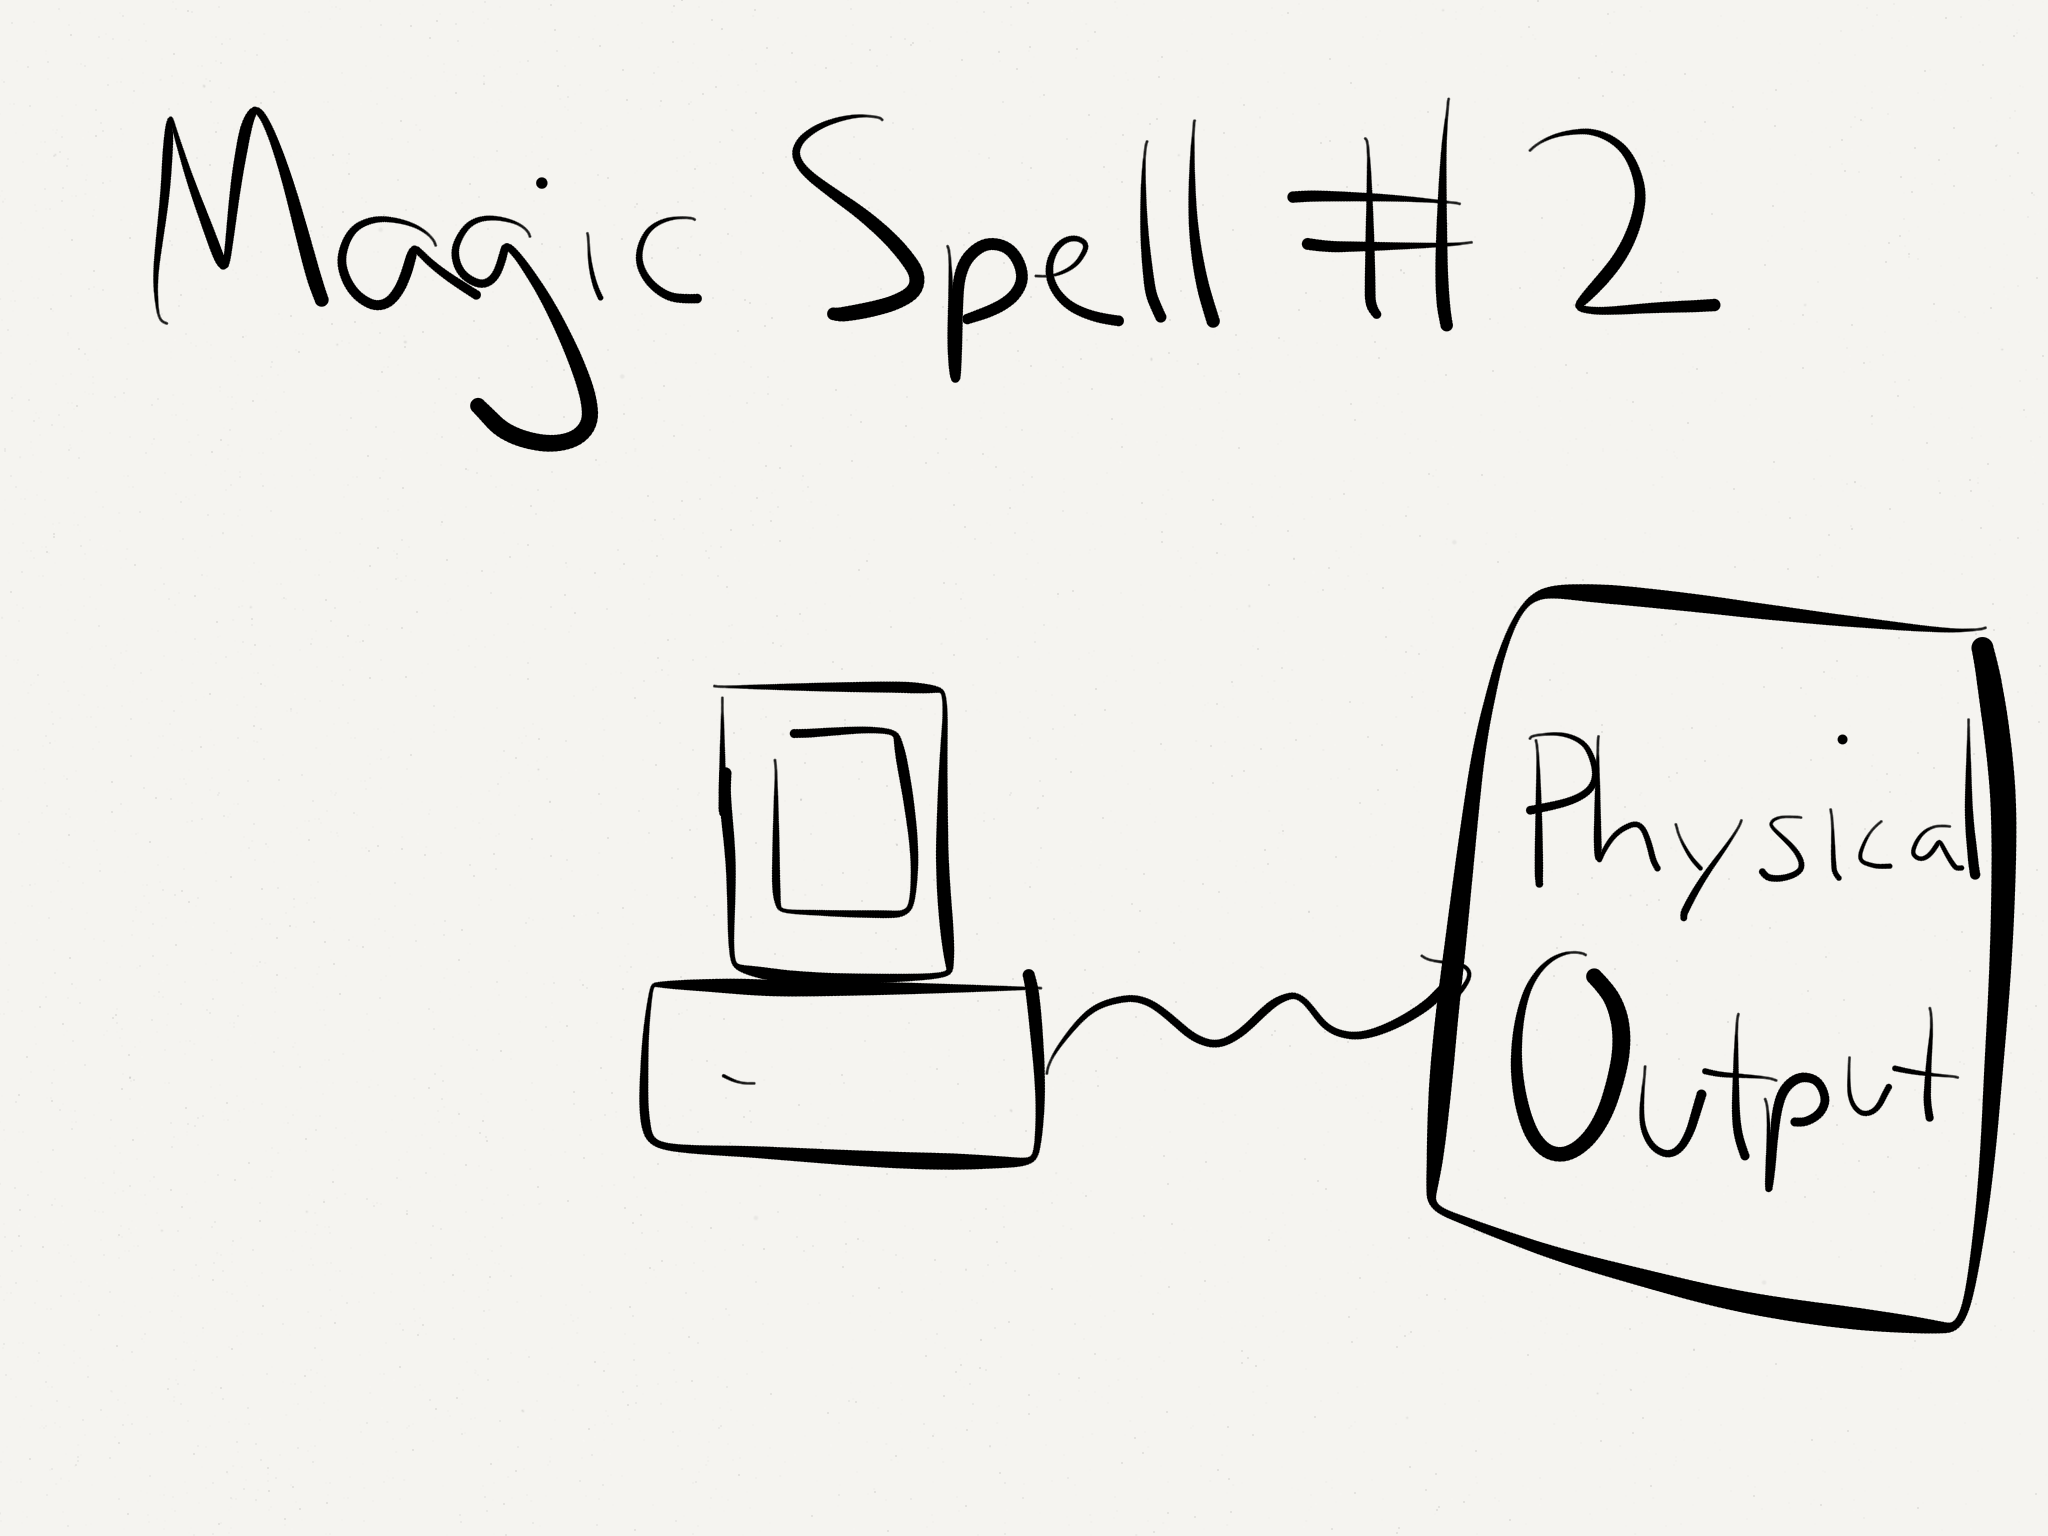 Magic Spell #2
Physical
Output